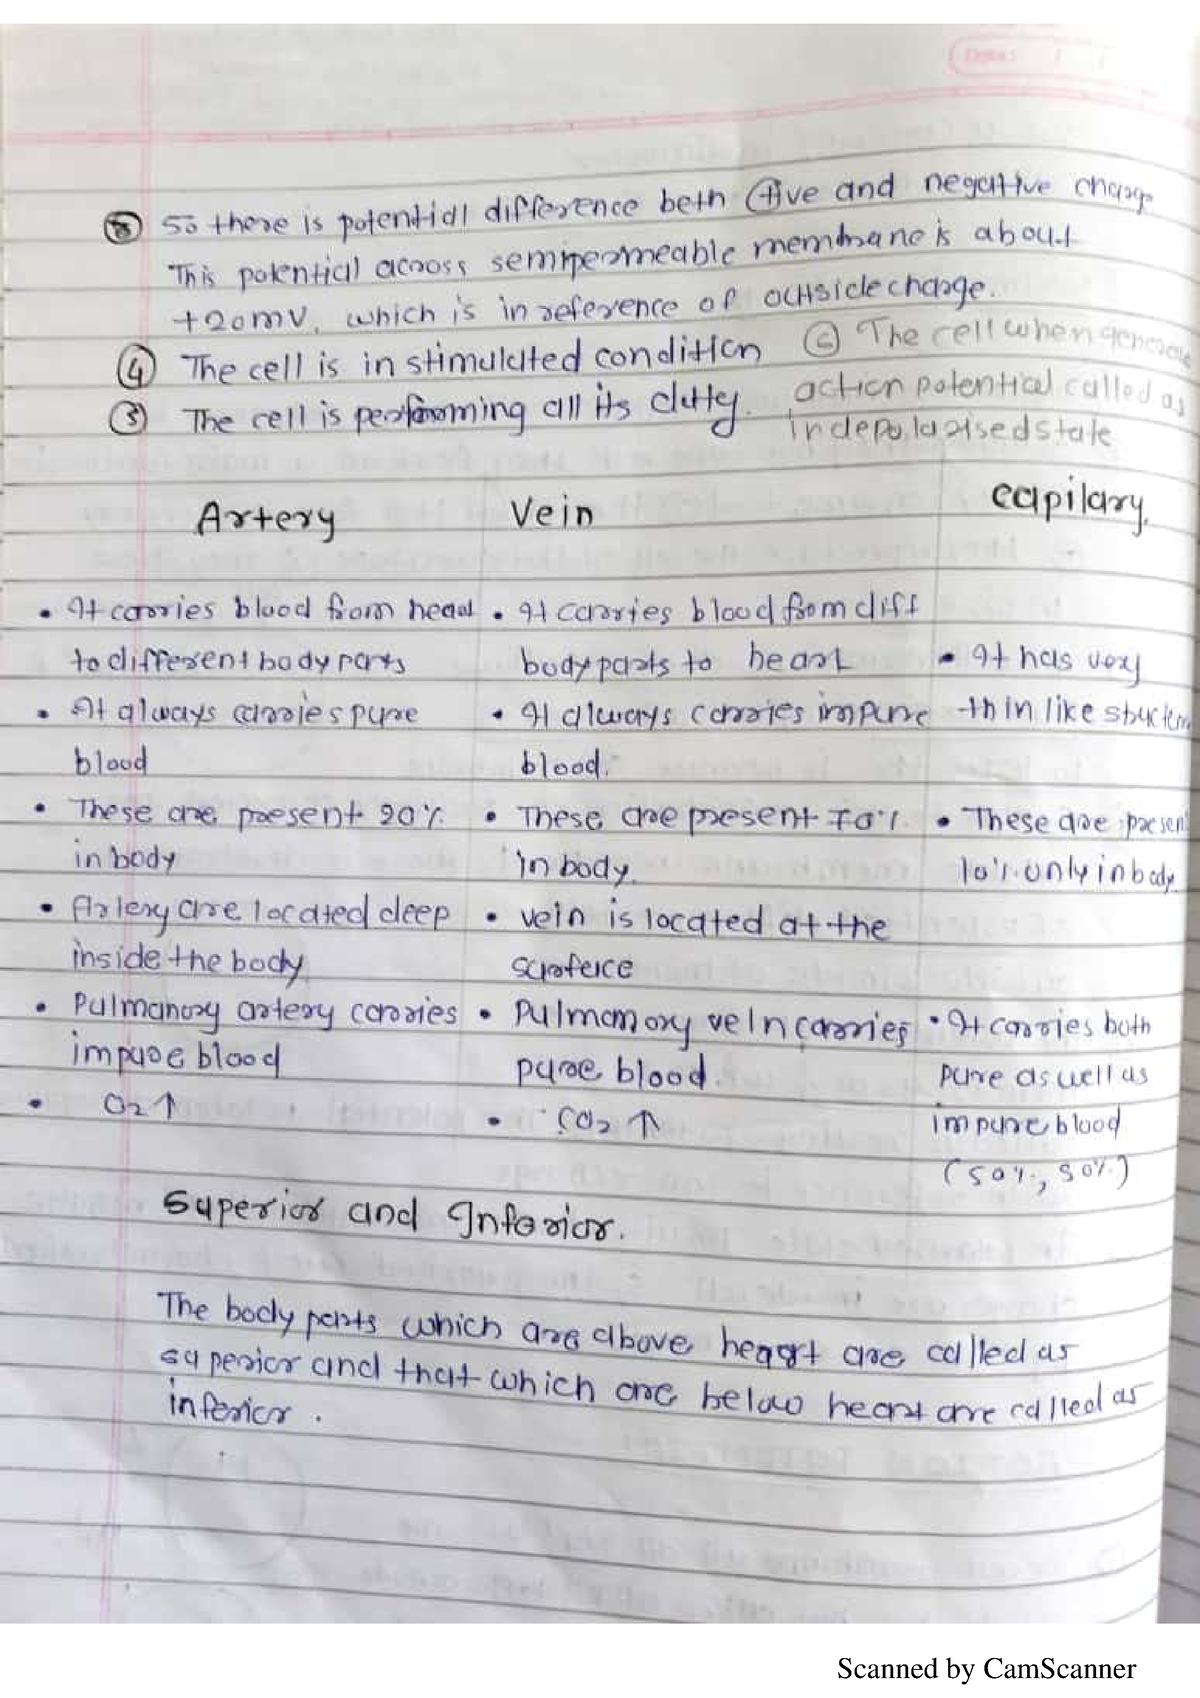 ③ So there is potential difference betn ⊕ive and negative charge
This potential across semipermeable membrane is about
+20mV, which is in reference of outside charge.
④ The cell is in stimulated condition
⑤ The cell is performing all its duty.
⑥ The cell when generate
action potential called as
in depolarised state
Artery Vein Capilary,
• It carries blood from heart
to different body parts
• It always carries pure
blood
• These are present 20%
in body
• Artery are located deep
inside the body
• Pulmanory artery carries
impure blood
• O2↑
• It carries blood from diff
body parts to heart
• It always carries impure
blood.
• These are present 70%
in body.
• vein is located at the
surface
• Pulmonory vein carries
pure blood.
• CO2↑
• It has very
thin like structure
• These are present
10% only in body
• It carries both
pure as well as
impure blood
(50%, 50%)
Superior and Inferior.
The body parts which are above heart are called as
superior and that which are below heart are called as
inferior.
Scanned by CamScanner